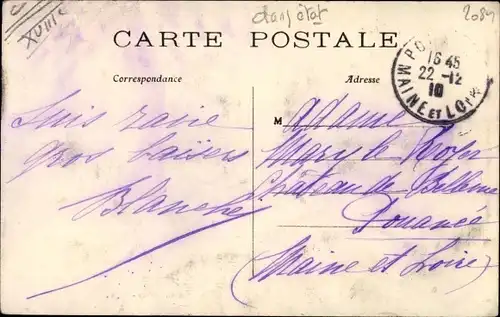 XVIIIe
dans état
2089
CARTE POSTALE
Correspondance
Adresse
PO
16 45
22 -12
10
MAINE ET LOIRE
Suis ravie
gros baisers
Blanche
Madame
Mary le Royer
Château de
Pouancé
(Maine et Loire)